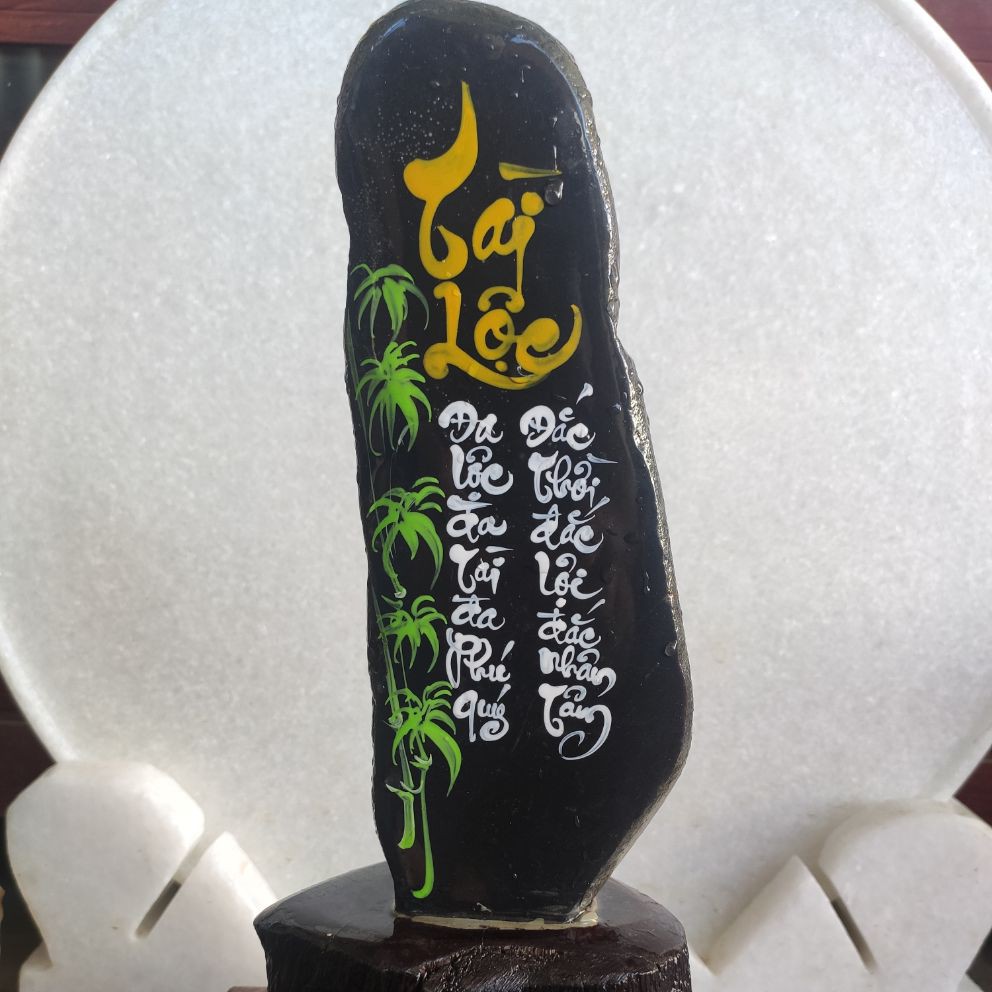 Tài
Lộc
Đa
lộc
đa
tài
đa
Phú
quý
Đắc
thời
đắc
lợi
đắc
nhân
tâm